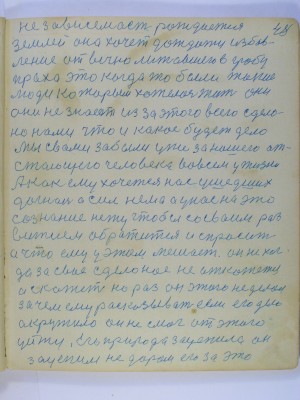 независемаст рождается 48
землей она хочет дождати избав
ление от вечно литавшего в гробу
праха это когдато были такие
люди который хотели жит они
они не знает из за этого всего сдело
но нами что и какое будет дело
Мы свами забыли уже за нашего от
стающего человека вовсем у жизни
Акак ему хочется нас ушедших
догнат а сил нема а унас на это
сознание нету чтобы со своим раз
витием обратится и спросит
а что ему у этом мешает. он неког
да за свае сделоное не откожеть
и скажет но раз он этого не делал
зачем ему расказыват если его дно
окружило он не смог от этого
уйти, Его природа заценила он
зауеним не даром его за это